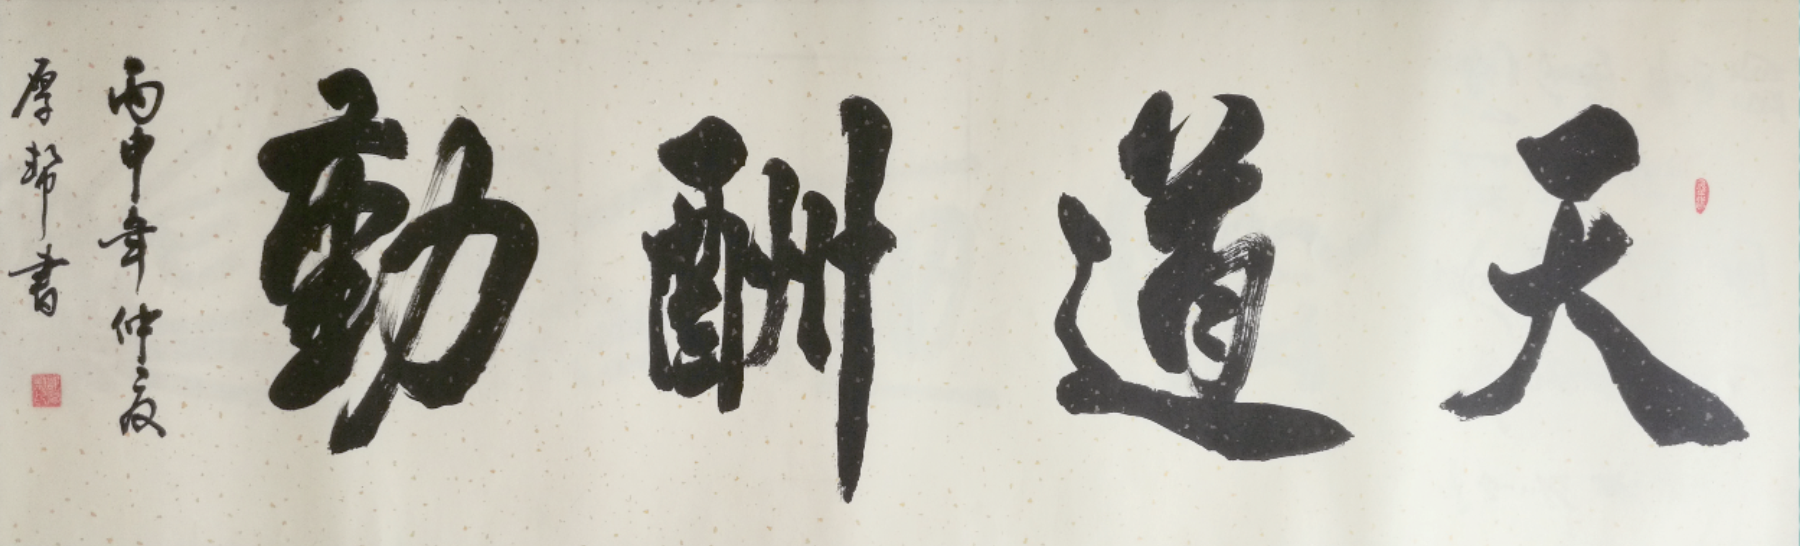 天道酬勤
丙申年仲夏
厚邦書